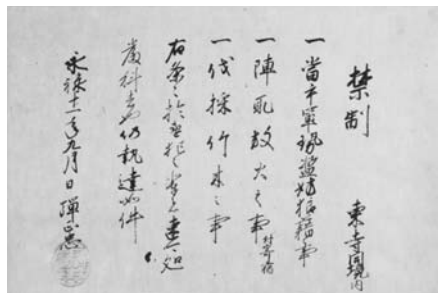 禁制 東寺同境内
一 当手軍勢濫妨狼藉事
一 陣取放火之事 付寄宿
一 伐採竹木之事
右条々於違犯之輩者速可処
厳科者也仍執達如件
永禄十一年九月日 弾正忠